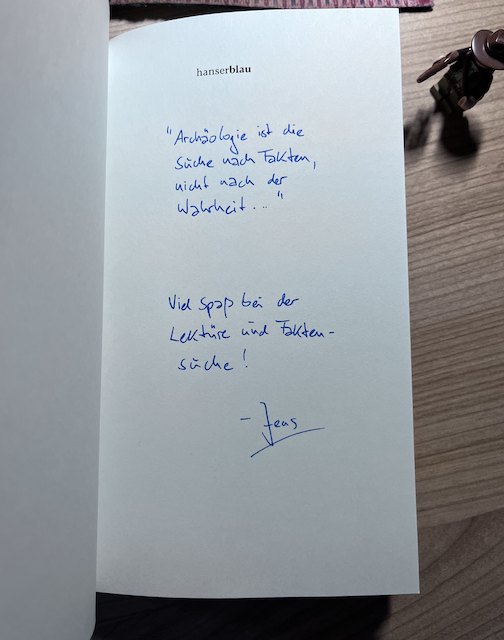 hanserblau
"Archäologie ist die
Suche nach Fakten,
nicht nach der
Wahrheit..."
Viel Spaß bei der
Lektüre und Fakten-
suche!
- Jens